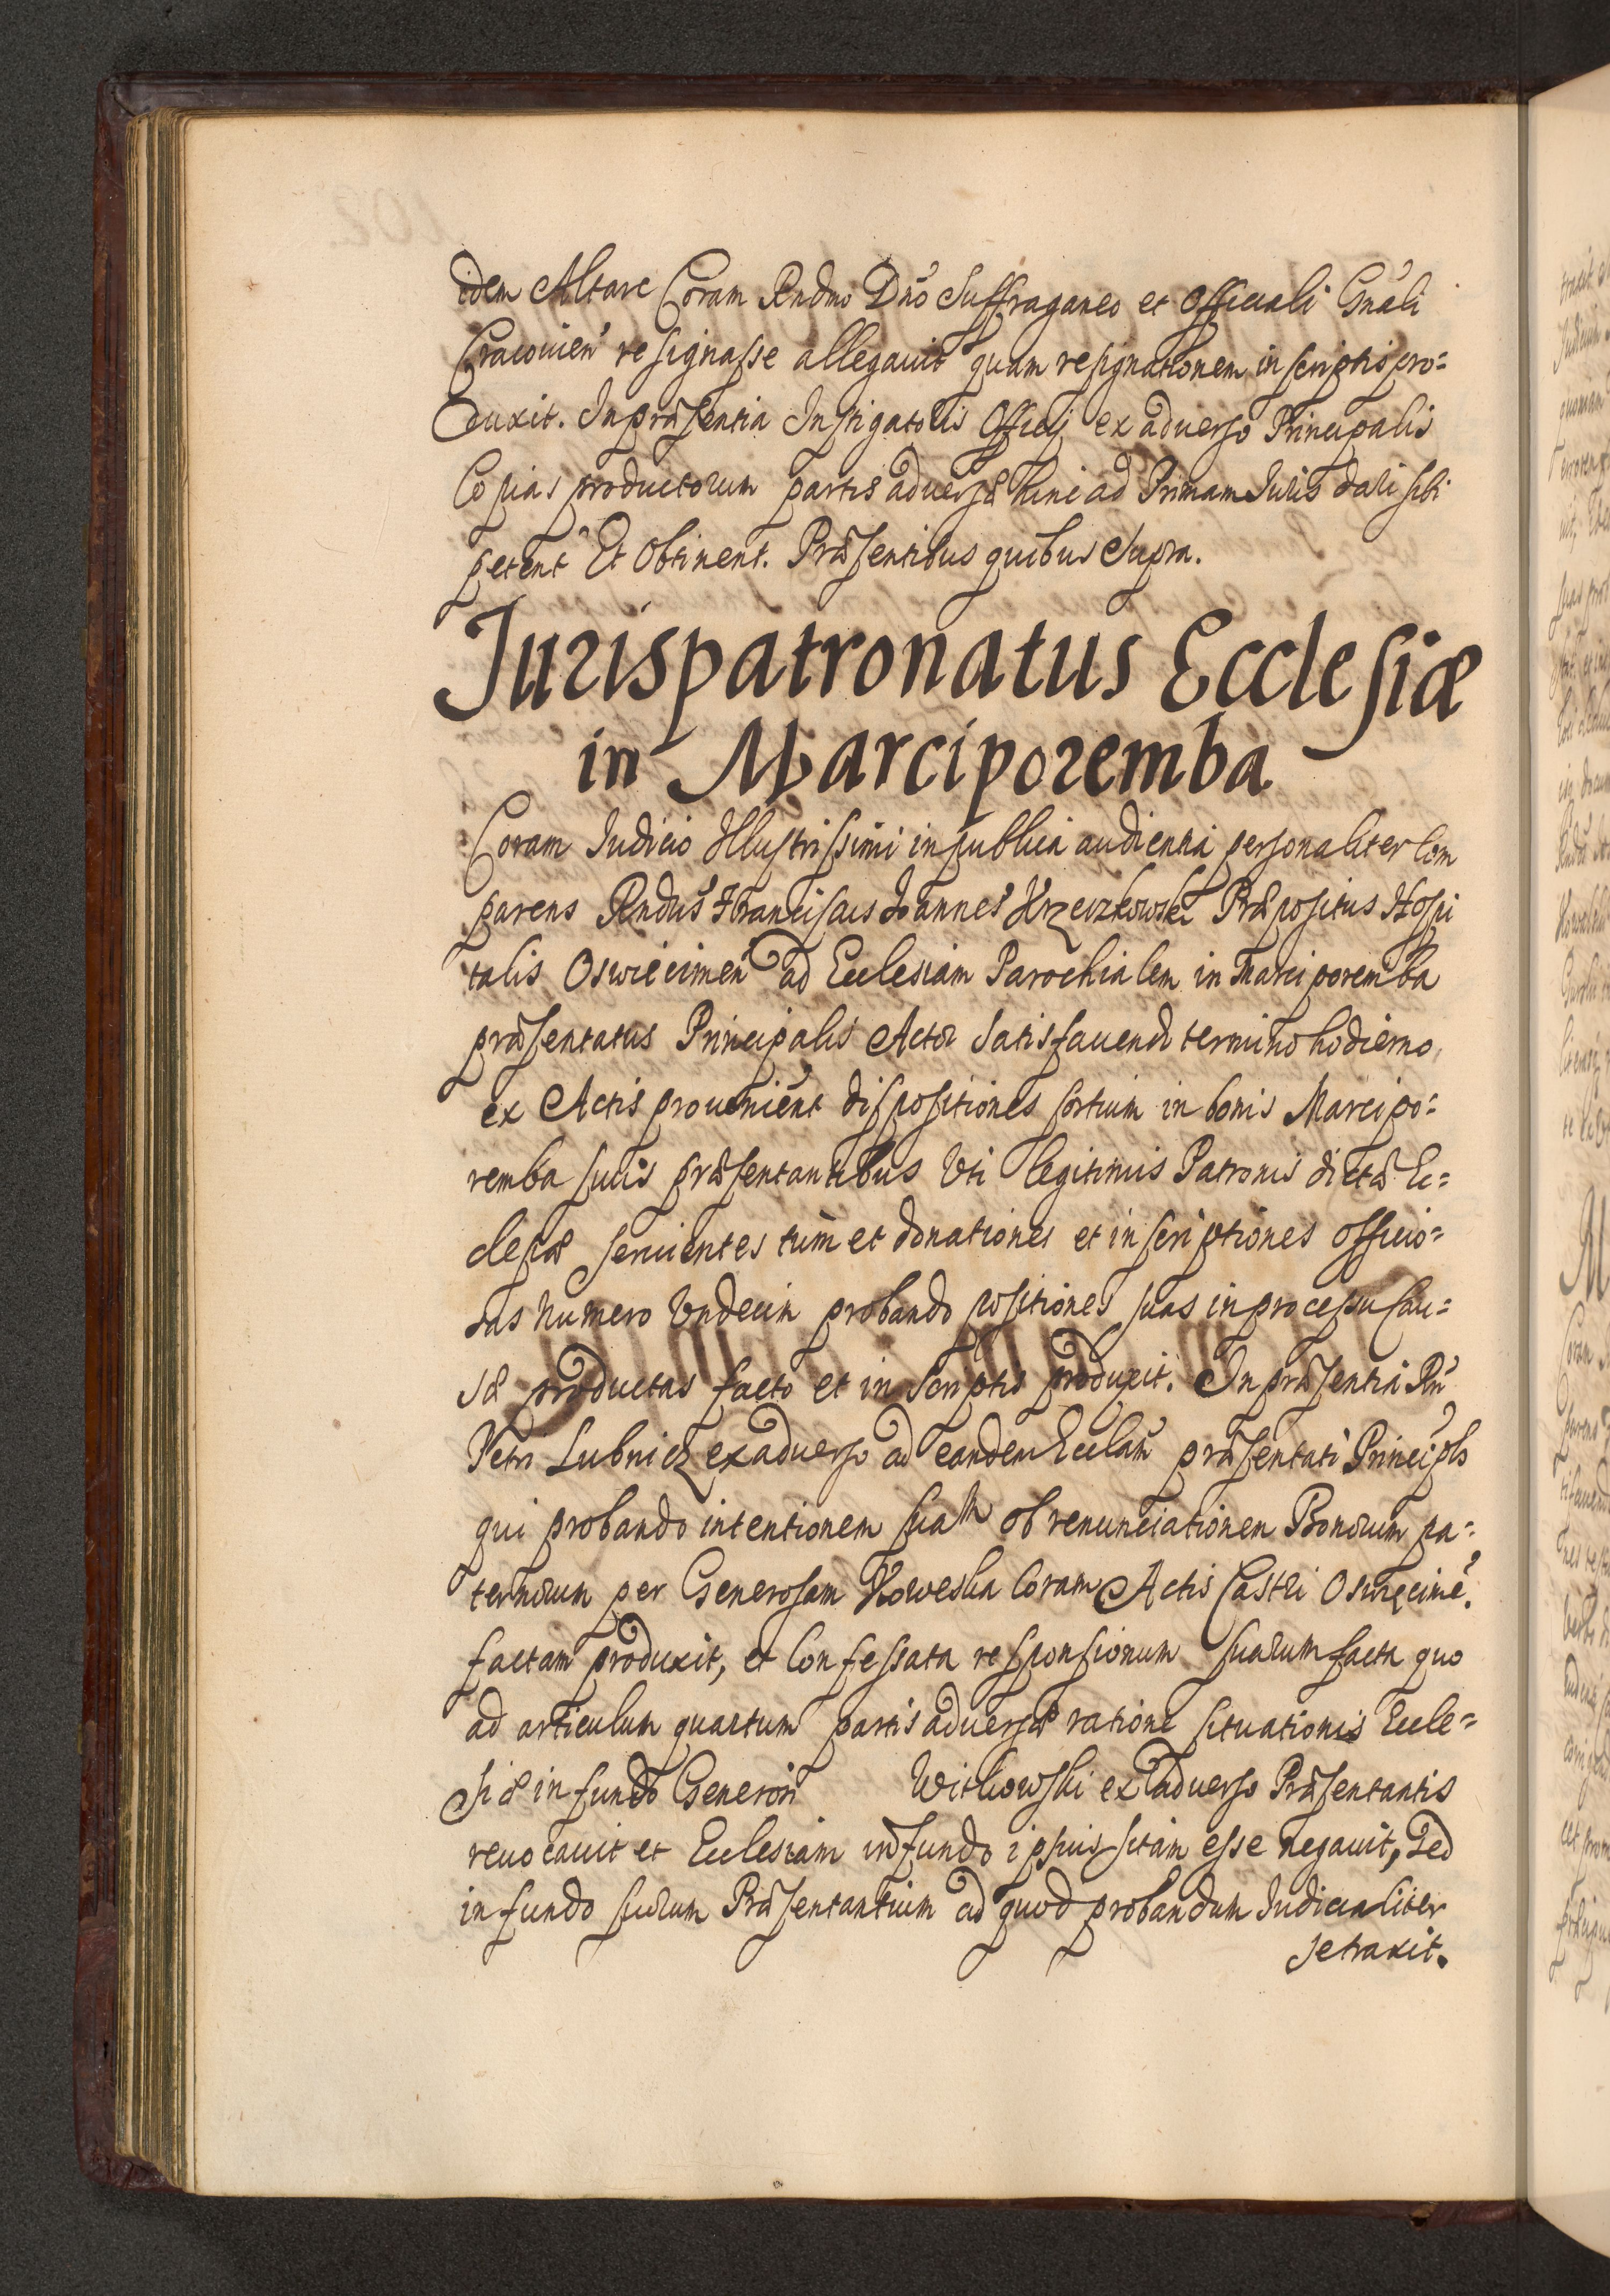 idem Altare Coram Rndmo Dnō Suffraganeo et Officiali Gnāli
Cracouien̄ resignasse allegauit quam resignationem in scriptis pro=
duxit. In præsentia Instigatoris Officij ex aduerso Principalis
Copias productorum partis aduersæ hinc ad Primam Iuris dari sibi
petent Et Obtinent. Præsentibus quibus Supra.
Jurispatronatus Ecclesiæ
in Marciporemba
Coram Iudicio Illustrissimi in publica audientia personaliter Com
parens Rndus Franciscus Joannes Præpositus Hospi
talis Oswiecimen̄ ad Ecclesiam Parochialem in Marciporemba
præsentatus Principalis Actor Satisfaciendo termino hodierno
ex Actis prouenient dispositiones sortium in bonis Marcipo=
remba suis præsentantibus Vti legitimis Patronis dictæ Ec=
clesiæ seruientes tum et donationes et inscriptiones officio=
sas numero Vndecim probando positiones suas in processu Cau=
sæ productas facto et in Scriptis produxit. In præsentia Rn̄
Petri Lubnicz ex aduerso ad eandem Ecclām præsentati Principlis
qui probando intentionem suam ob renunciationem Bonorum pa=
ternorum per Generosam Coram Actis Castri Oswiecimē.
factam produxit, et Confessata responsionum suarum facta quo
ad articulum quartum partis aduersæ ratione situationis Eccle=
siæ in fundo Generosi Witkowski ex aduerso Præsentantis
reuocauit et Ecclesiam in fundo ipsius sitam esse negauit, Sed
in fundo suorum Præsentantium ad quod probandum Iudicialiter
se traxit.